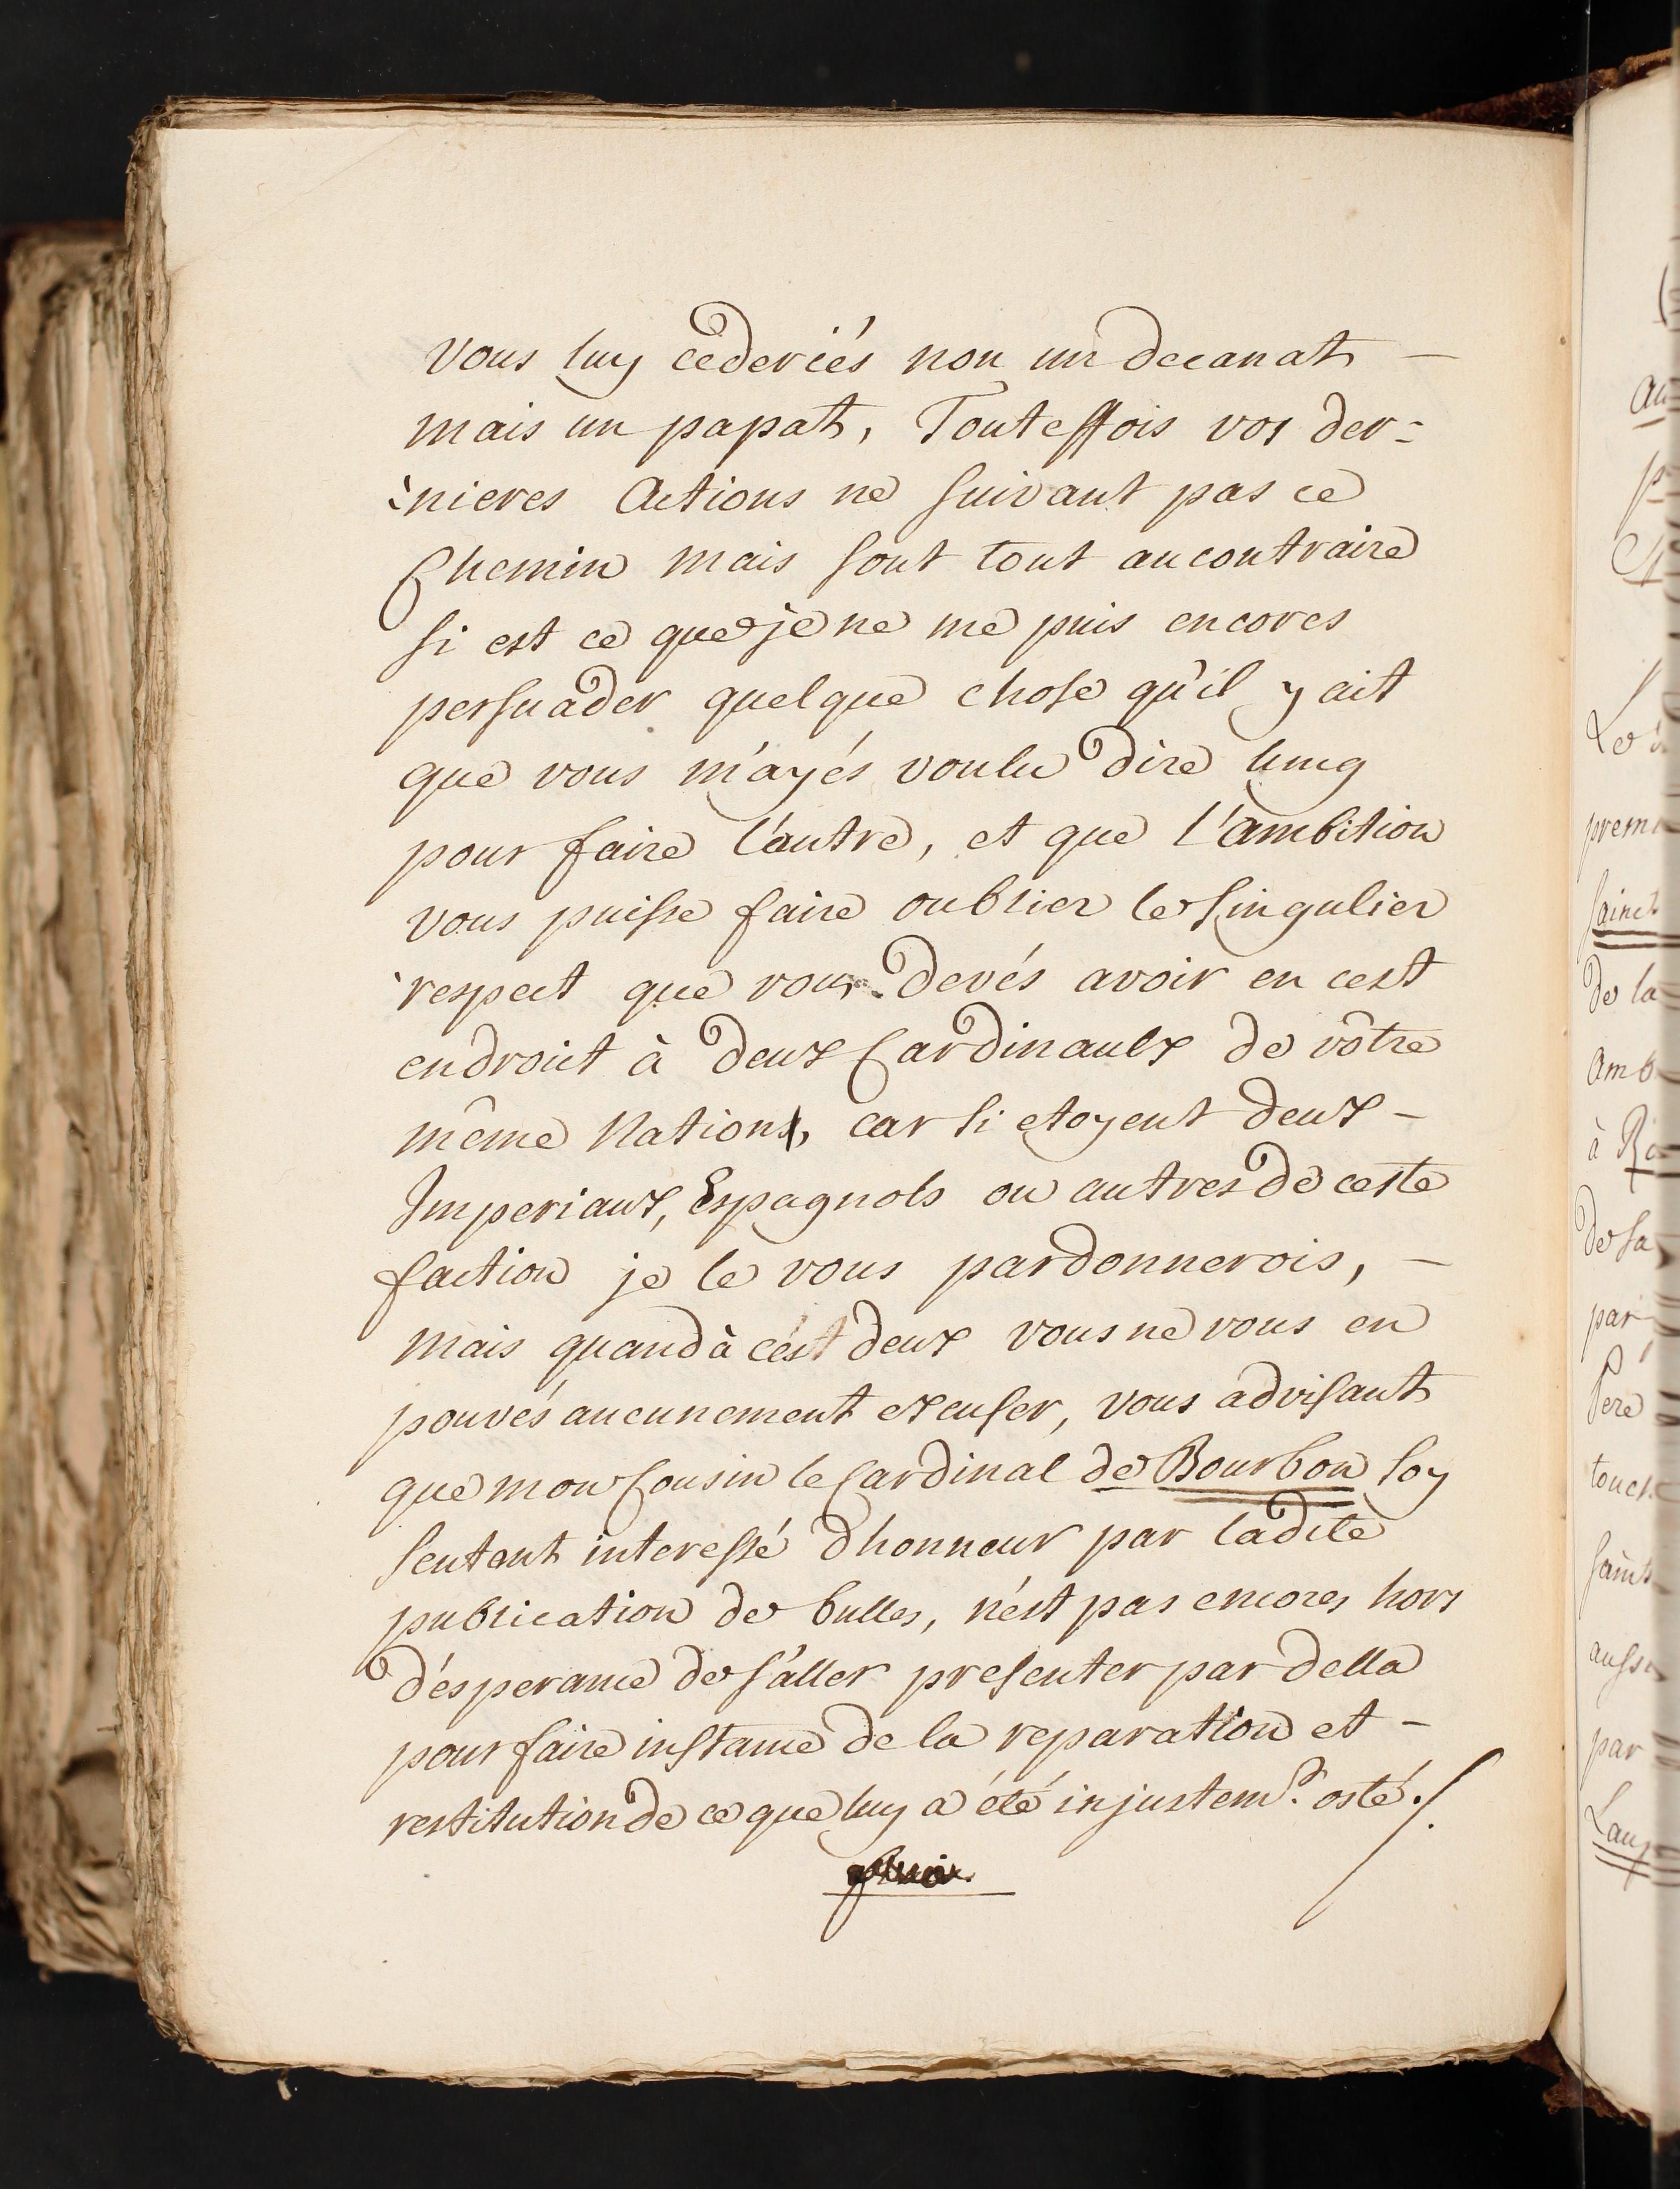 vous luy cederiés non un decanat —
mais un papat, Touteffois vos der=
=nieres Actions ne suivant pas ce
Chemin mais sont tout au contraire
si est ce que je ne me puis encores
persuader quelque chose qu'il y ait
que vous m'ayés voulu dire lung
pour faire l'autre, et que l'ambition
vous puisse faire oublier le singulier
respect que vous devés avoir en cest
endroict à deux Cardinaulx de vôtre
même Nation, car si etoyent deux —
Imperiaux, Espagnols ou autres de ceste
faction je le vous pardonnerois, —
mais quand à cést deux vous ne vous en
pouvés aucunement excuser, vous advisant
que mon Cousin le Cardinal de Bourbon soy
sentant interessé d'honneur par ladite
publication de bulles, n'est pas encores hors
d'ésperance de s'aller presenter par della
pour faire instance de la reparation et —
restitution de ce que luy a été injustem.t osté./.
au
p
Le
premi
sainct
de la
Amb
à Ro
de sa
par
Pere
touch
saint
aussi
par
Lau